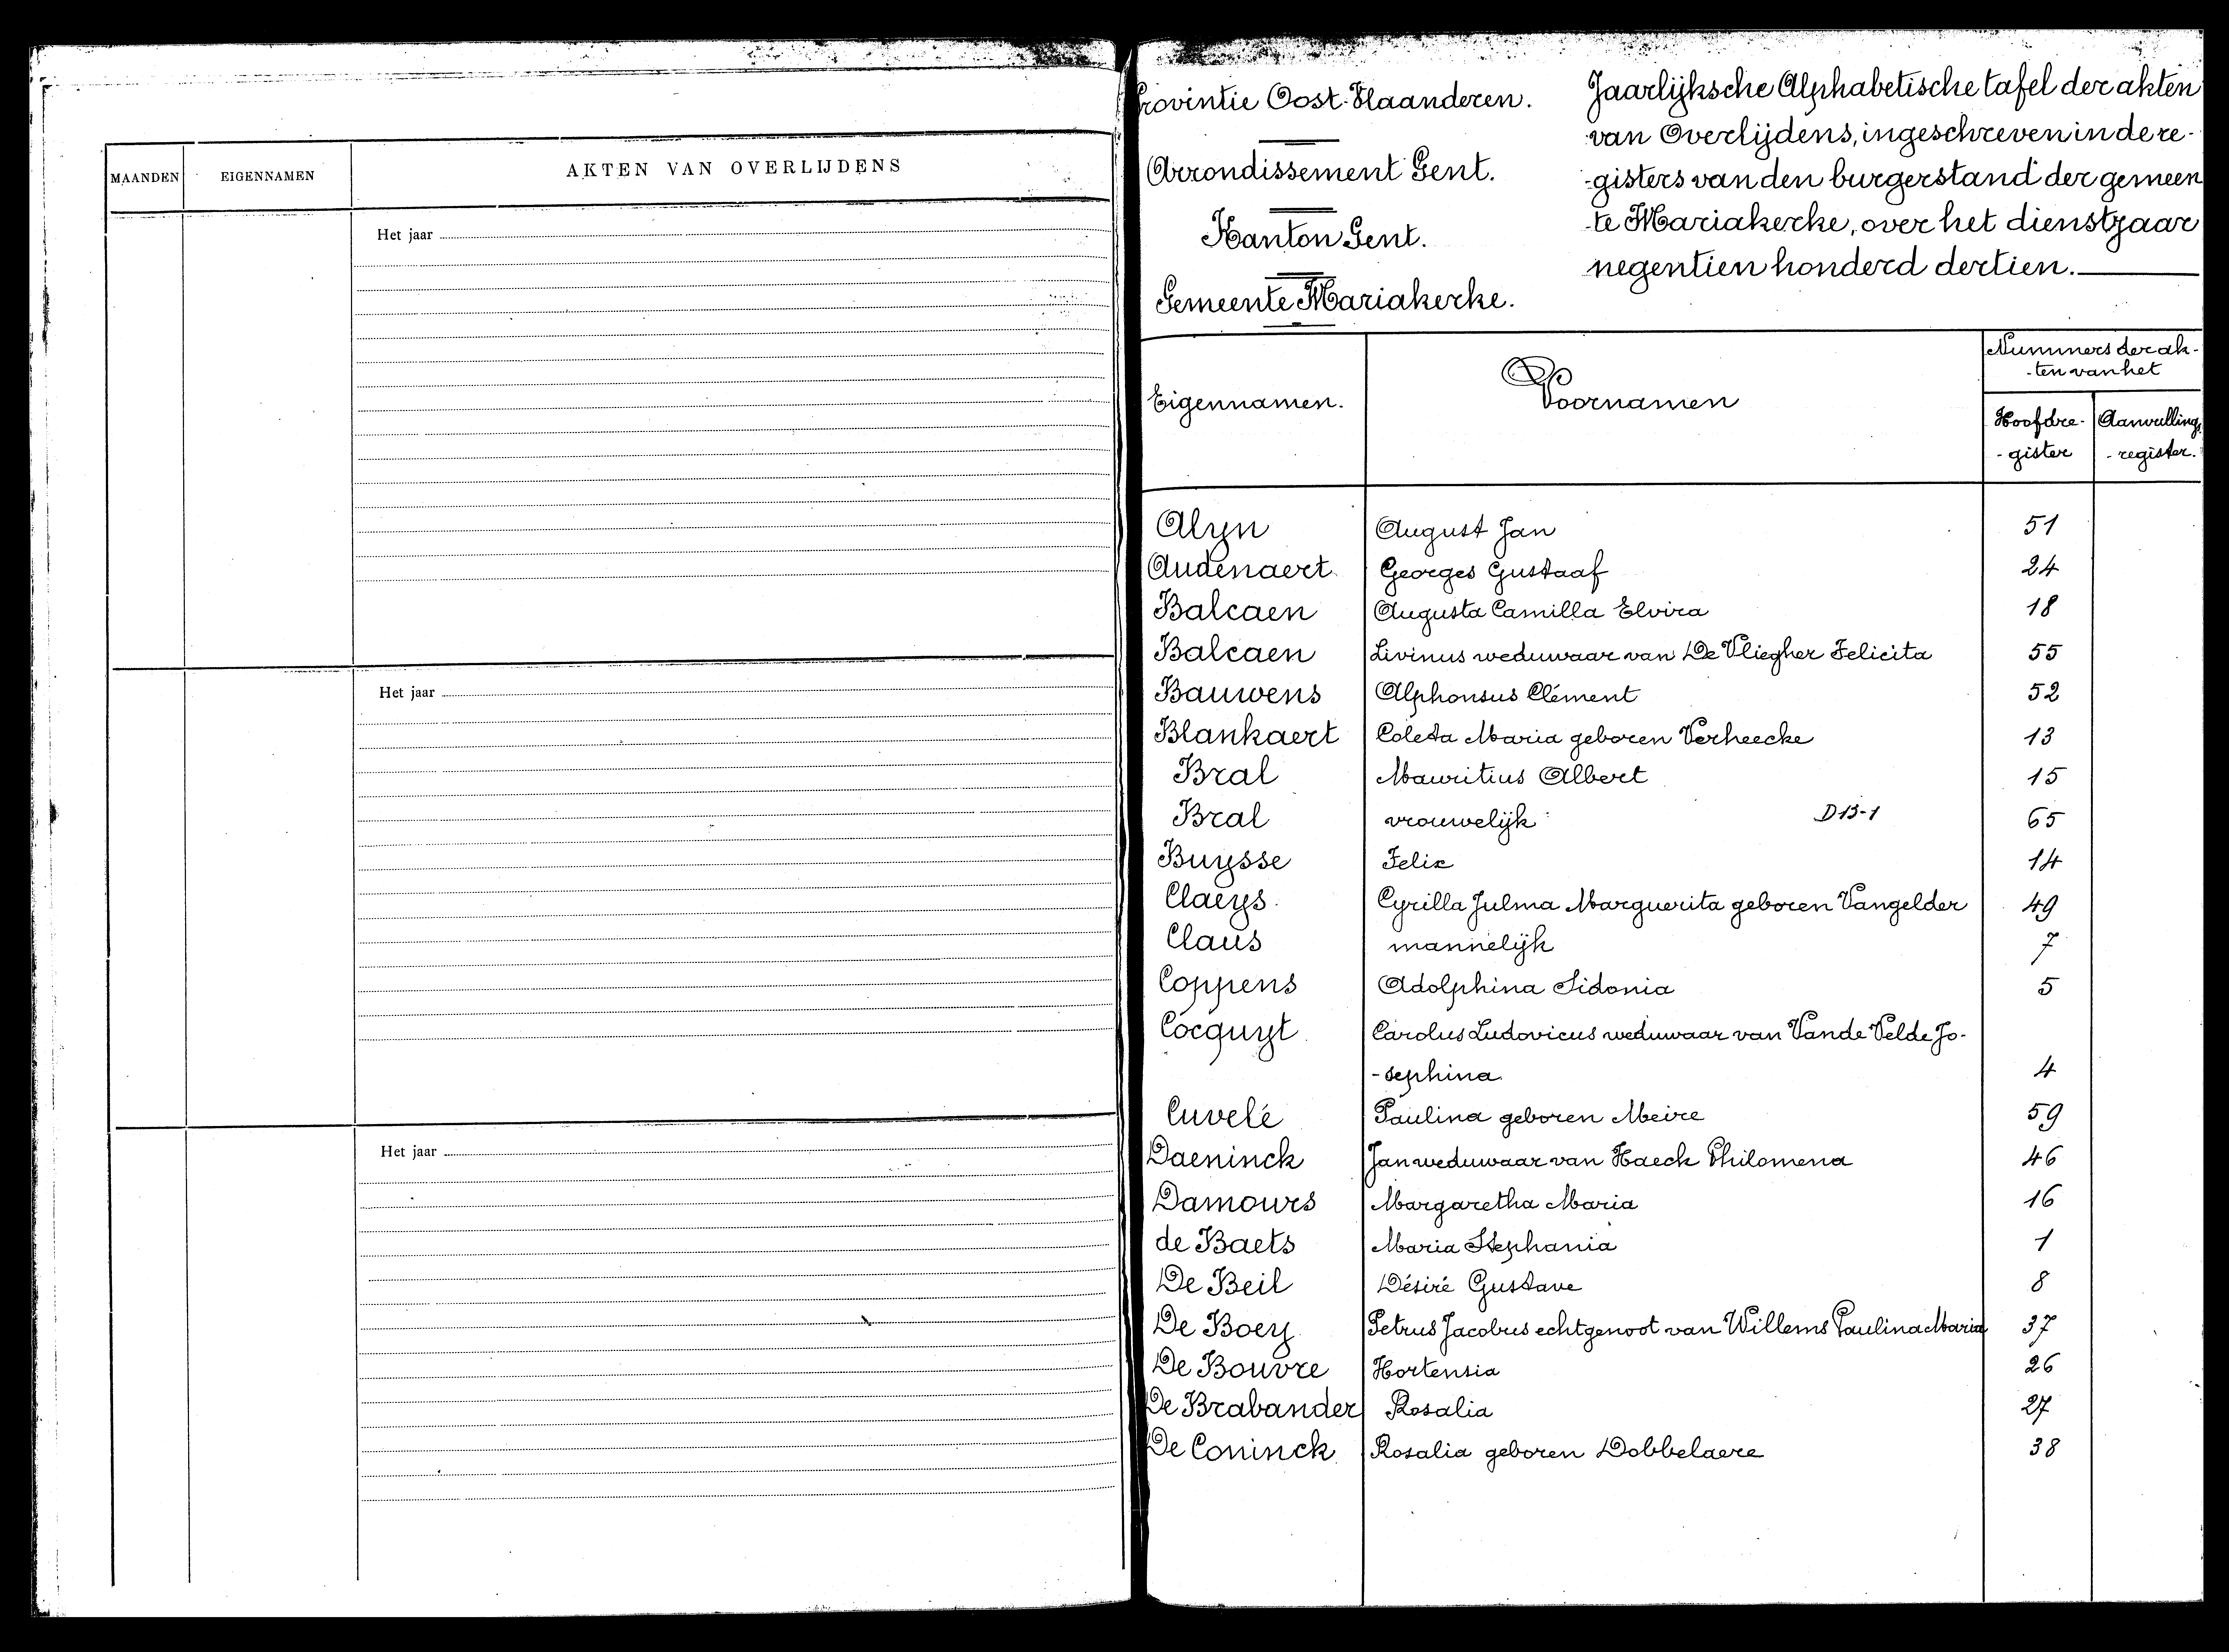 MAANDEN EIGENNAMEN AKTEN VAN OVERLIJDENS
Het jaar
Het jaar
Het jaar
Provintie Oost-Vlaanderen.
Arrondissement Gent.
Kanton Gent.
Gemeente Mariakerke.
Jaarlijksche Alphabetische tafel der akten
van Overlijdens, ingeschreven in de re-
-gisters van den burgerstand der gemeen
-te Mariakerke, over het dienstjaar
negentien honderd dertien.
Eigennamen. Voornamen
Nummers der ak-
-ten van het
Hoofdre- Aanvullings
-gister -register.
Alyn August Jan 51
Audenaert Georges Gustaaf 24
Balcaen Augusta Camilla Elvira 18
Balcaen Livinus weduwaar van De Vliegher Felicita 55
Bauwens Alphonsus Clément 52
Blankaert Coleta Maria geboren Verheecke 13
Bral Mauritius Albert 15
Bral vrouwelijk D13-1 65
Buysse Felix 14
Claeys Cyrilla Julma Marguerita geboren Vangelder 49
Claus mannelijk 7
Coppens Adolphina Sidonia 5
Cocquyt Carolus Ludovicus weduwaar van Vande Velde Jo-
-sephina 4
Cuvelé Paulina geboren Meire 59
Daeninck Jan weduwaar van Haeck Philomena 46
Damours Margaretha Maria 16
de Baets Maria Stephania 1
De Beil Désiré Gustave 8
De Boey Petrus Jacobus echtgenoot van Willems Paulina Maria 37
De Bouvre Hortensia 26
De Brabander Rosalia 27
De Coninck Rosalia geboren Dobbelaere 38